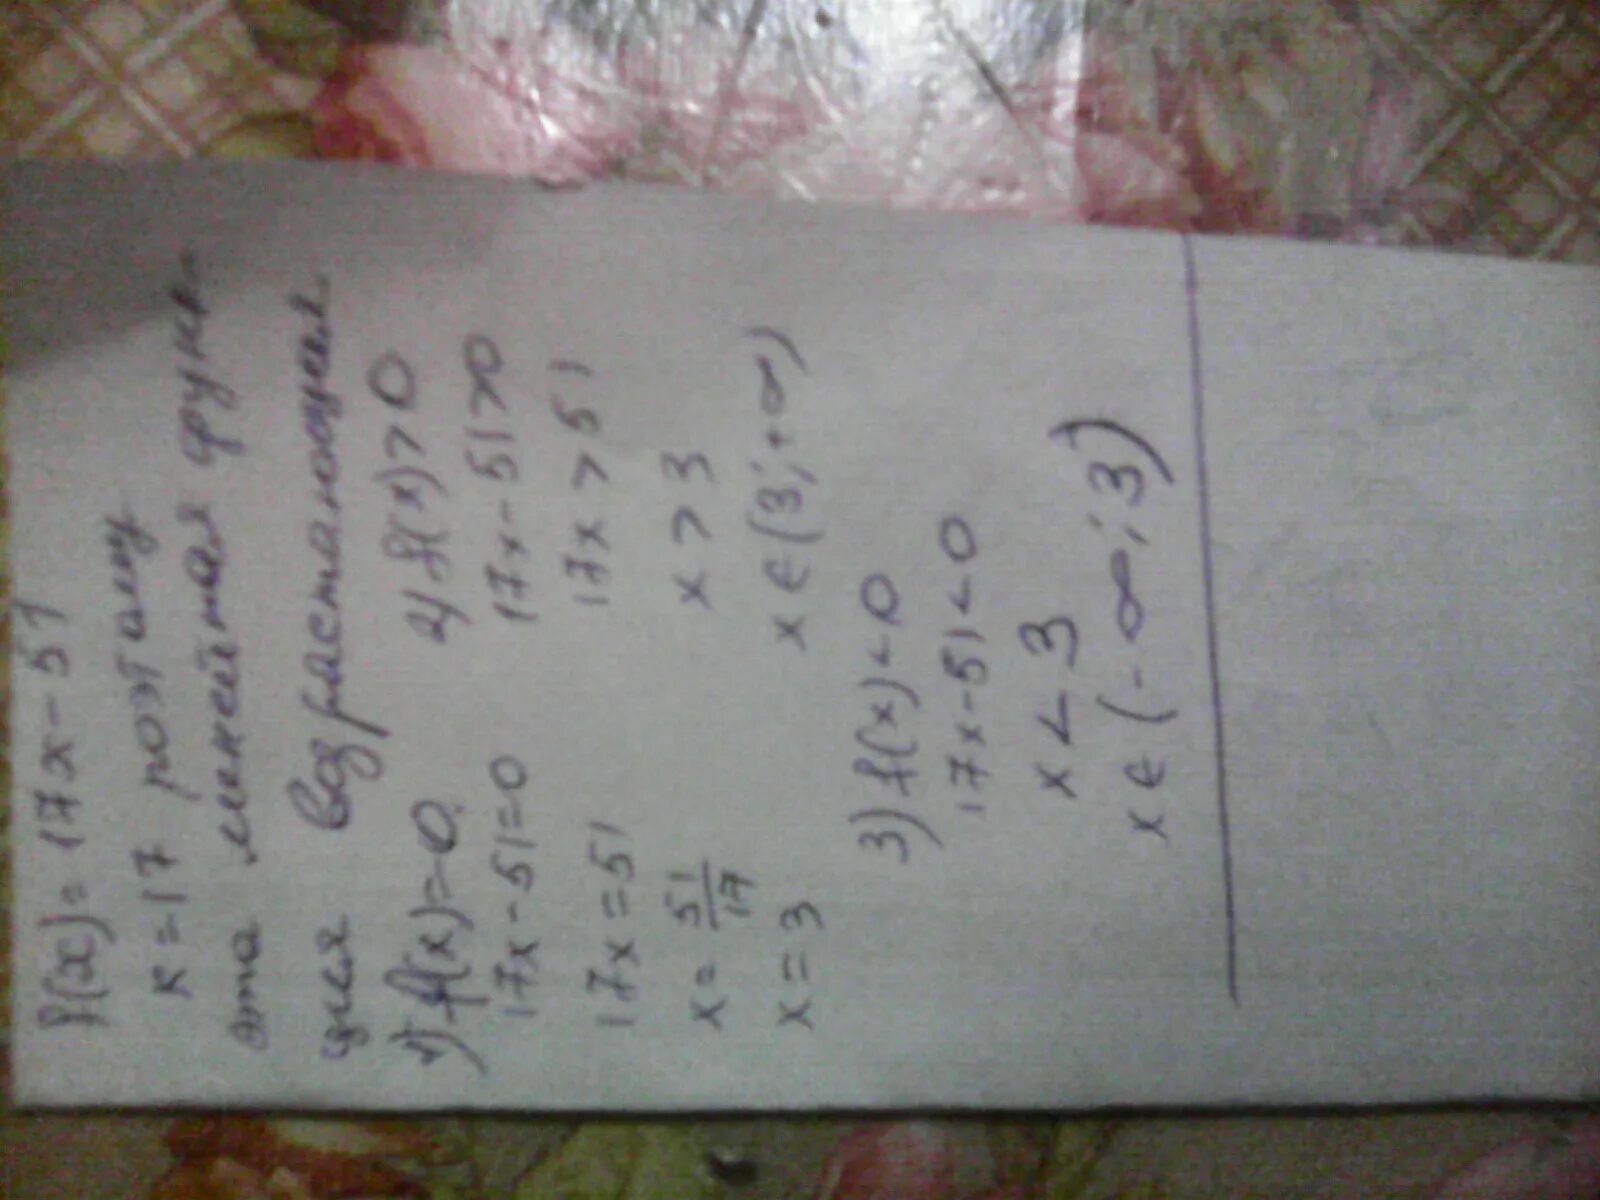 f(x)=17x-51
к=17 поэтому
эта линейная функ-
ция возрастающая
1) f(x)=0.
17x-51=0
17x=51
x=51/17
x=3
2) f(x)>0
17x-51>0
17x>51
x>3
x∈(3;+∞)
3) f(x)<0
17x-51<0
x<3
x∈(-∞;3)